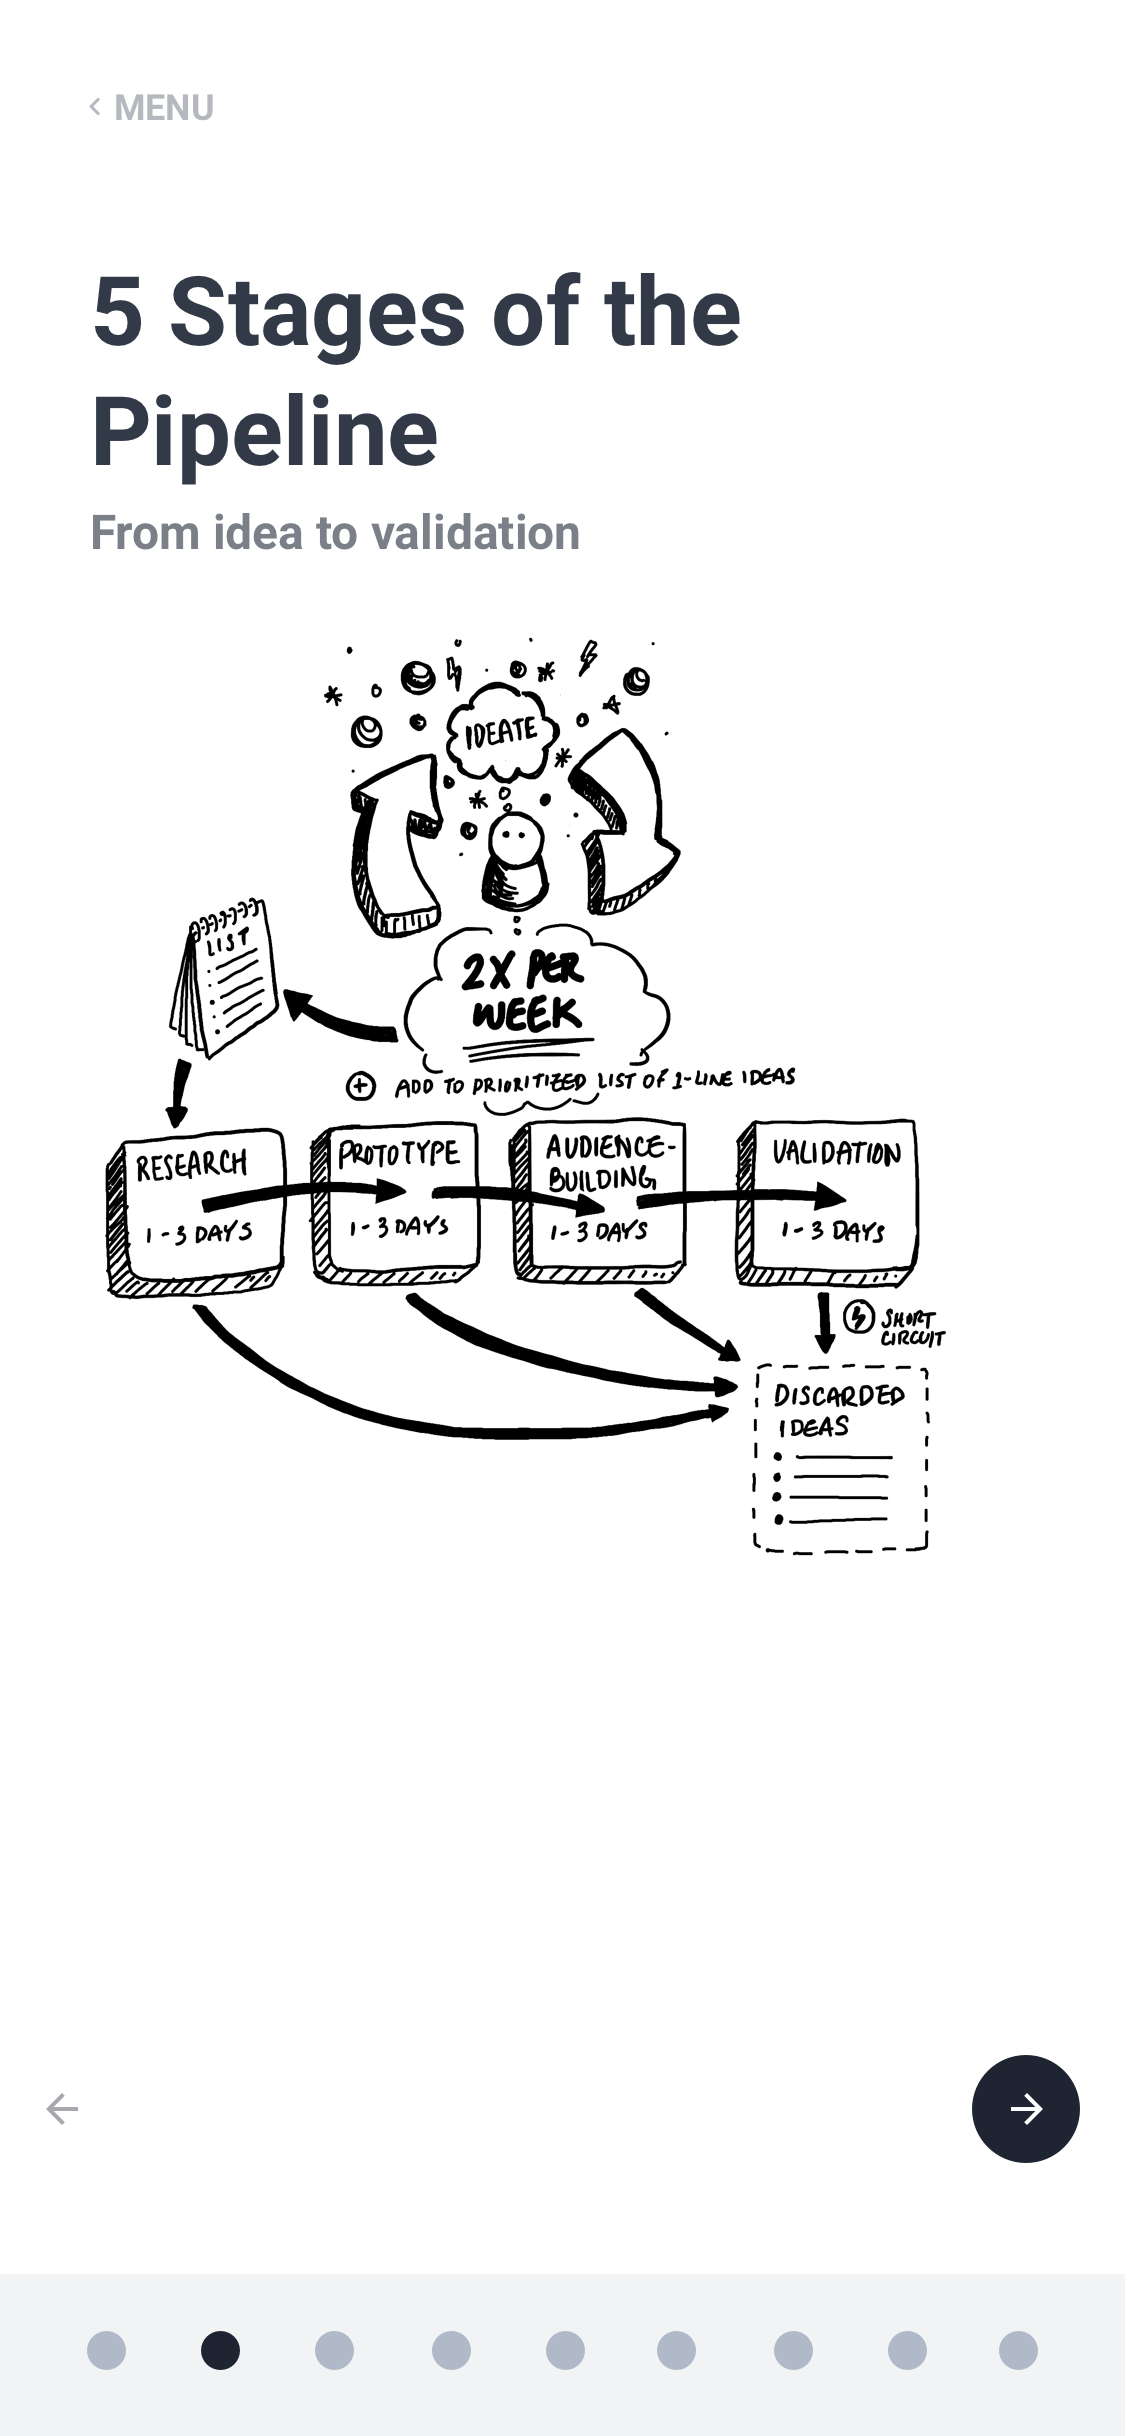 MENU
5 Stages of the
Pipeline
From idea to validation
IDEATE
LIST
2X PER
WEEK
ADD TO PRIORITIZED LIST OF 1-LINE IDEAS
RESEARCH
1-3 DAYS
PROTOTYPE
1-3 DAYS
AUDIENCE-
BUILDING
1-3 DAYS
VALIDATION
1-3 DAYS
SHORT
CIRCUIT
DISCARDED
IDEAS